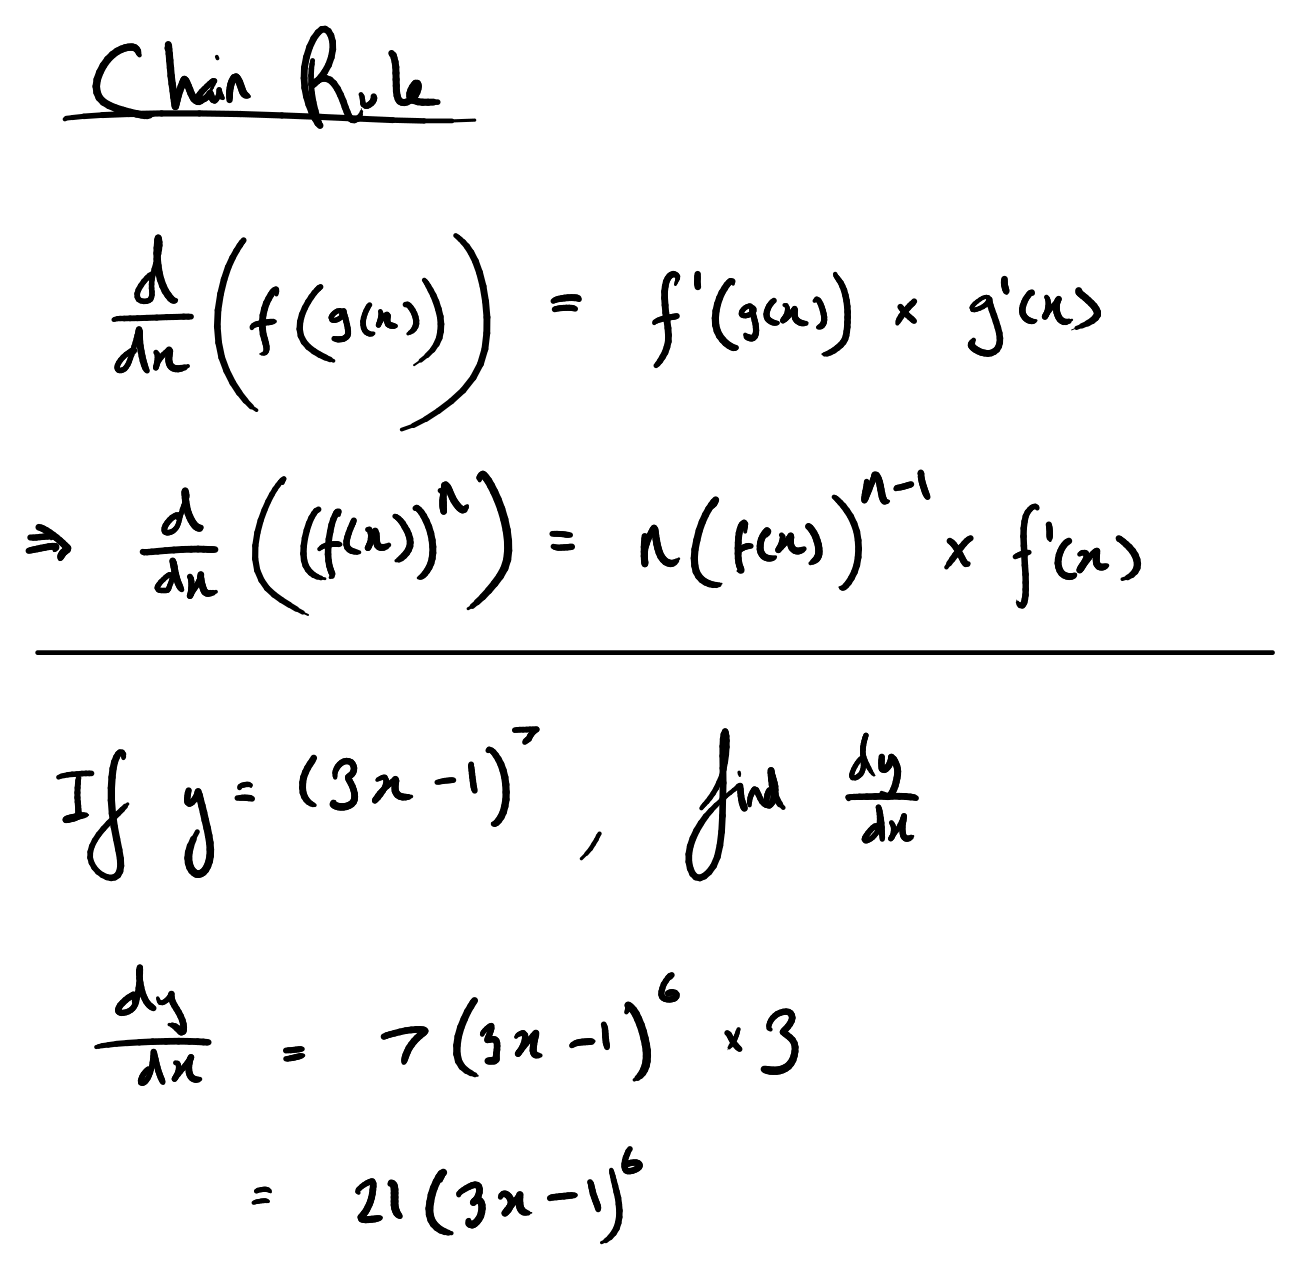 Chain Rule
d/dx (f(g(x))) = f'(g(x)) × g'(x)
⇒ d/dx ((f(x))^n) = n(f(x))^(n-1) × f'(x)
If y = (3x - 1)^7, find dy/dx
dy/dx = 7(3x - 1)^6 × 3
= 21(3x - 1)^6